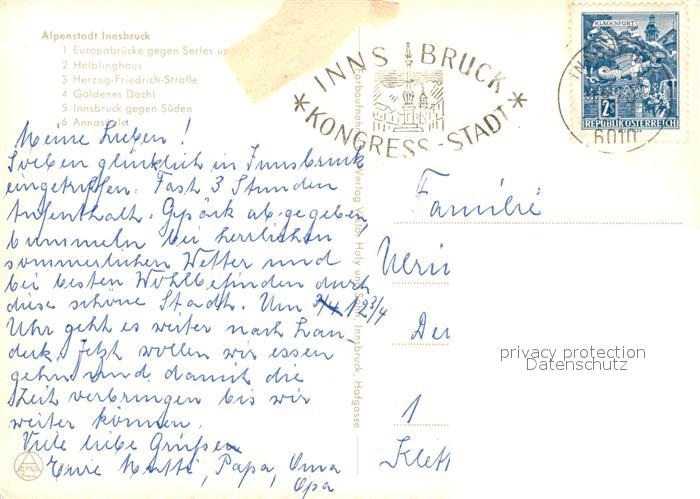 Alpenstadt Innsbruck
1 Europabrücke gegen Serles u
2 Helblinghaus
3 Herzog-Friedrich-Straße
4 Goldenes Dachl
5 Innsbruck gegen Süden
6 Annasäule
INNSBRUCK
*KONGRESS-STADT*
KLAGENFURT
2S
REPUBLIK ÖSTERREICH
6010
Meine Lieben!
Soeben glücklich in Innsbruck
eingetroffen. Fast 3 Stunden
Aufenthalt. Gepäck ab-gegeben,
bummeln bei herrlichen
sommerlichen Wetter und
bei besten Wohlbefinden durch
diese schöne Stadt. Um 12 3/4
Uhr geht es weiter nach Lan-
deck. Jetzt wollen wir essen
gehn und damit die
Zeit verbringen bis wir
weiter können.
Viele liebe Grüßen
Eure Mutti, Papa, Oma
Opa
Verlag Viktor Holy und Sohn, Innsbruck, Hofgasse
ALPINE
Familie
Ulri
1
Klett
privacy protection
Datenschutz